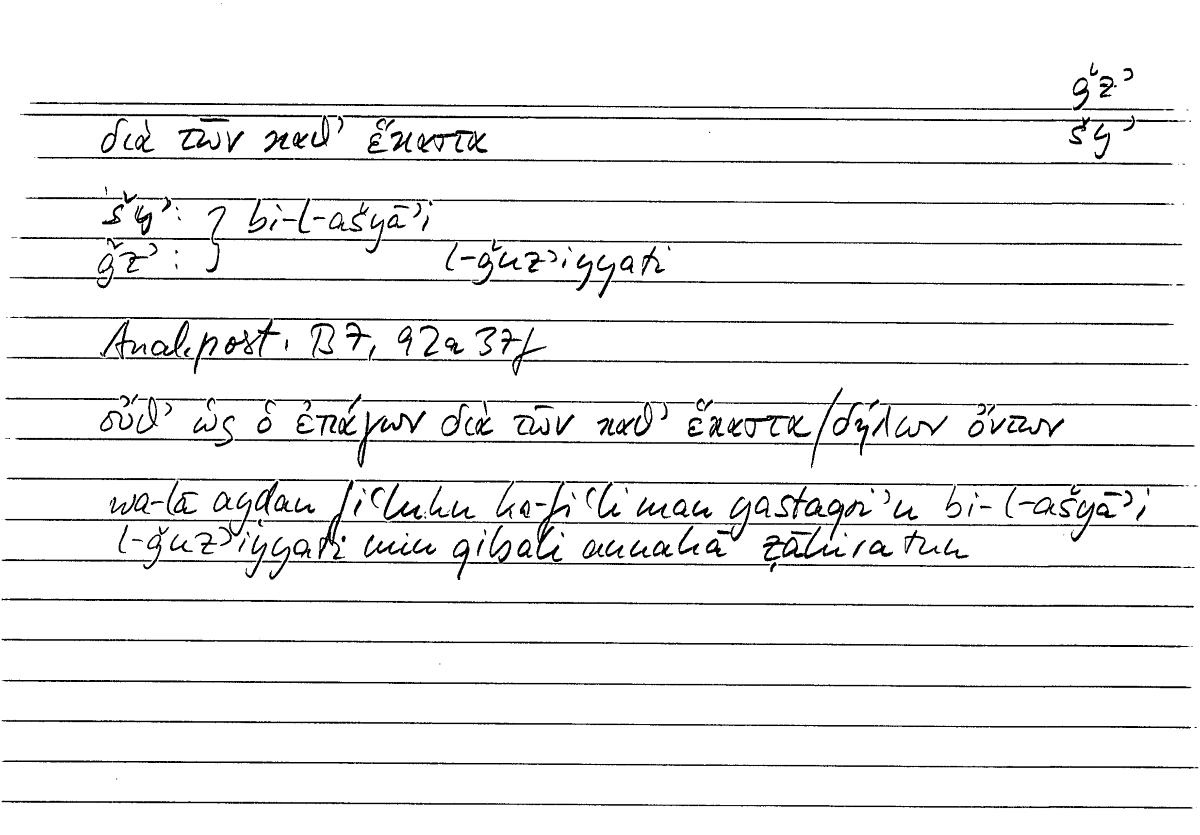 ǧzʾ
διὰ τῶν καθ’ ἕκαστα
šyʾ
šyʾ: } bi-l-ašyāʾi
ǧzʾ: l-ǧuzʾiyyati
Anal. post. B 7, 92a 37f
οὔθ’ ὡς ὁ ἐπάγων διὰ τῶν καθ’ ἕκαστα/δήλων ὄντων
wa-lā ayḍan fiʿluhu ka-fiʿli man yastaqriʾu bi-l-ašyāʾi
l-ǧuzʾiyyati min qibali annahā ẓāhiratun